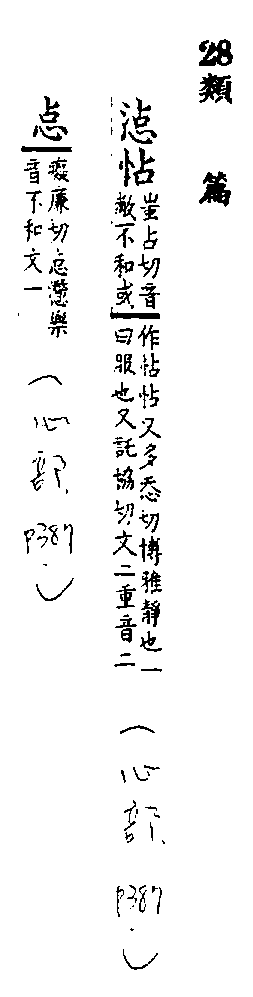 28類 篇
惉怗
蚩占切音
敝不和或
作怗怗又多忝切博雅靜也一
曰服也又託協切文二重音二
(心部, p387.)
㤐
癡廉切㤐懘樂
音不和文一
(心部, p387.)